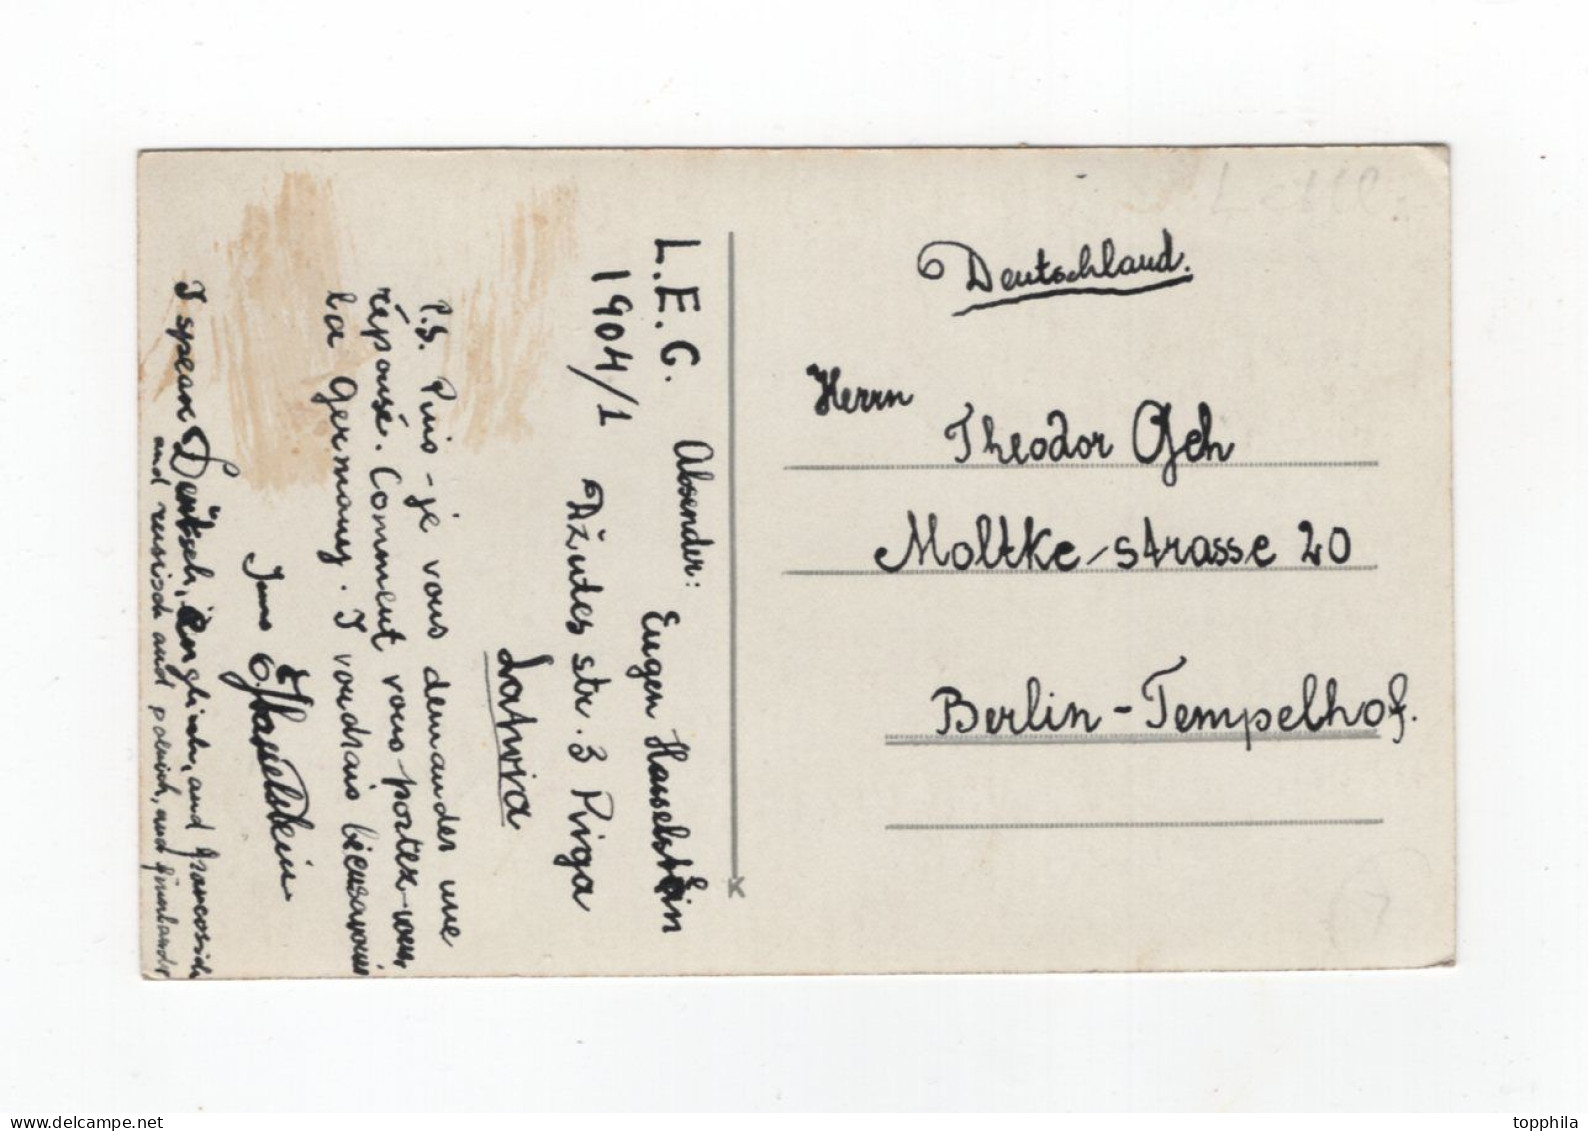 L.E.C. Absender: Eugen Hasselstein
1904/1 Džutes str. 3 Riga
Latvia
P.S. Puis-je vous demander une
réponsé. Comment vous portez-vous,
La Germany. I voudrais bien savoir
E. Hasselstein
I spear Deutsch, Englisch, and francosisch
and rusisch and polnisch, and finnlands
Deutschland.
Herrn
Theodor Geh
Moltke-strasse 20
Berlin-Tempelhof.
K
topphila